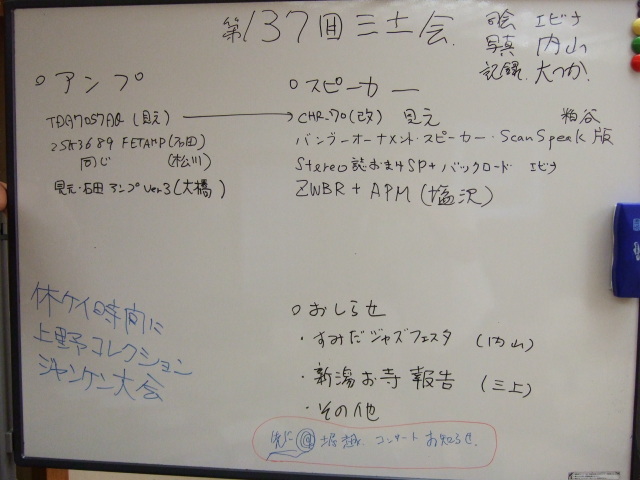 第137回 三土会
司会 エビナ
写真 内山
記録 大つか
○アンプ
TDA7057AQ (見元)
2SK3689 FETAMP (石田)
同じ (松川)
見元・石田アンプ Ver3 (大橋)
○スピーカー
CHR-70 (改) 見元
粕谷
バンブーオーナメント・スピーカー・ScanSpeak版
Stereo誌おまけSP+バックロード エビナ
ZWBR + APM (塩沢)
休ケイ時間に
上野コレクション
ジャンケン大会
○おしらせ
・すみだジャズフェスタ (内山)
・新潟お寺報告 (三上)
・その他
堀越 コンサートお知らせ